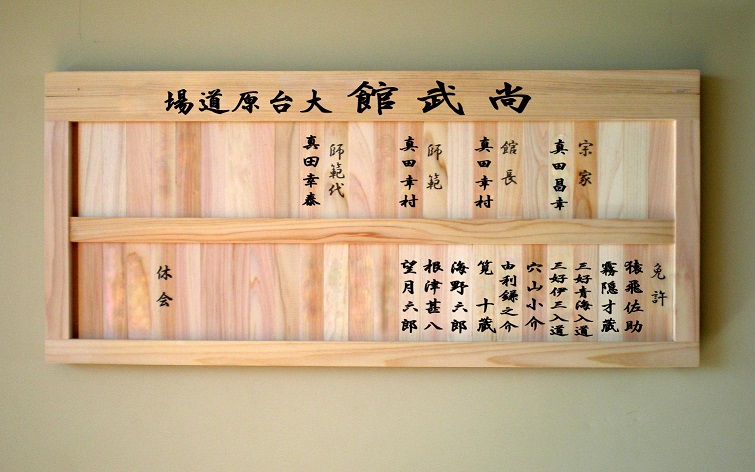 尚武館 大台原道場
宗家
真田昌幸
館長
真田幸村
師範
真田幸村
師範代
真田幸泰
免許
猿飛佐助
霧隠才蔵
三好青海入道
三好伊三入道
穴山小介
由利鎌之介
筧十蔵
海野六郎
根津甚八
望月六郎
休会